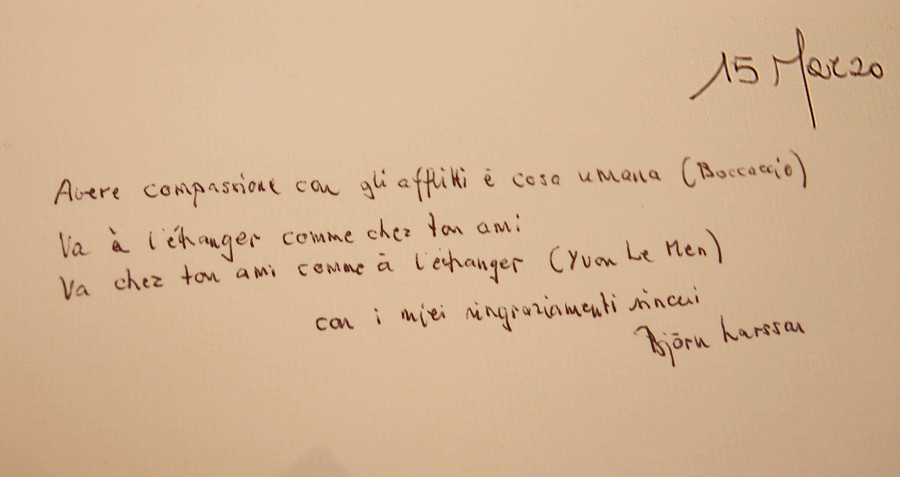 15 Marzo
Avere compassione con gli afflitti è cosa umana (Boccaccio)
Va à l'étranger comme chez ton ami
Va chez ton ami comme à l'étranger (Yvon Le Men)
con i miei ringraziamenti sinceri
Björn Larsson